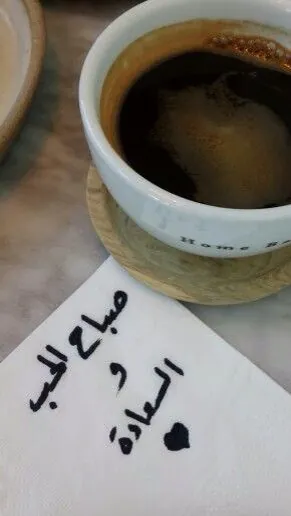 Home
صباح الحب
و
السعادة